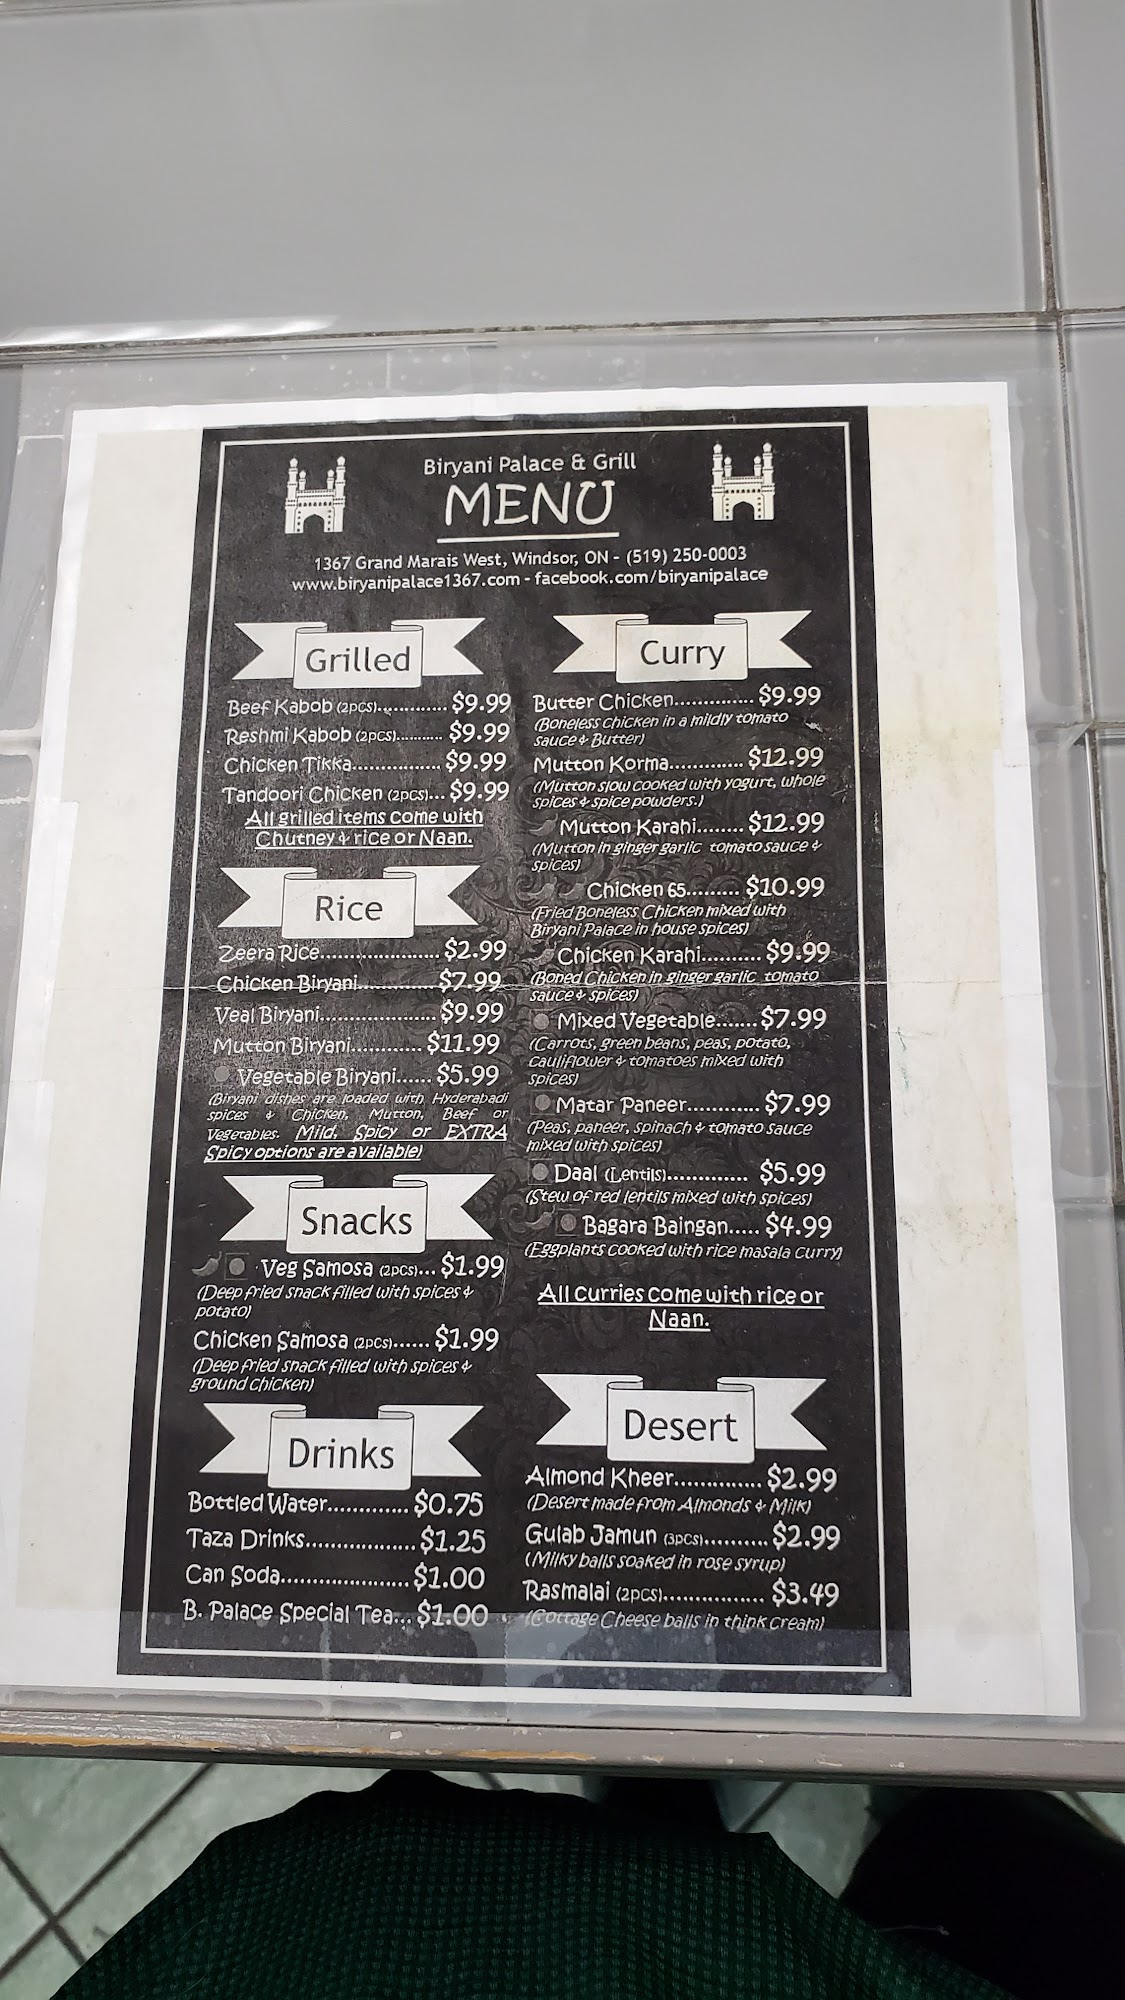 Biryani Palace & Grill
MENU
1367 Grand Marais West, Windsor, ON - (519) 250-0003
www.biryanipalace1367.com - facebook.com/biryanipalace
Grilled
Beef Kabob (2pcs)............. $9.99
Reshmi Kabob (2pcs)........... $9.99
Chicken Tikka................. $9.99
Tandoori Chicken (2pcs)... $9.99
All grilled items come with
Chutney & rice or Naan.
Rice
Zeera Rice....................... $2.99
Chicken Biryani................ $7.99
Veal Biryani...................... $9.99
Mutton Biryani............. $11.99
Vegetable Biryani...... $5.99
(Biryani dishes are loaded with Hyderabadi
spices & Chicken, Mutton, Beef or
Vegetables. Mild, Spicy or EXTRA
Spicy options are available)
Snacks
Veg Samosa (2pcs)... $1.99
(Deep fried snack filled with spices &
potato)
Chicken Samosa (2pcs)...... $1.99
(Deep fried snack filled with spices &
ground chicken)
Drinks
Bottled Water............. $0.75
Taza Drinks.................. $1.25
Can Soda...................... $1.00
B. Palace Special Tea... $1.00
Curry
Butter Chicken.............. $9.99
(Boneless chicken in a mildly tomato
sauce & Butter)
Mutton Korma............. $12.99
(Mutton slow cooked with yogurt, whole
spices & spice powders.)
Mutton Karahi........ $12.99
(Mutton in ginger garlic tomato sauce &
spices)
Chicken 65......... $10.99
(Fried Boneless Chicken mixed with
Biryani Palace in house spices)
Chicken Karahi.......... $9.99
(Boned Chicken in ginger garlic tomato
sauce & spices)
Mixed Vegetable....... $7.99
(Carrots, green beans, peas, potato,
cauliflower & tomatoes mixed with
spices)
Matar Paneer............ $7.99
(Peas, paneer, spinach & tomato sauce
mixed with spices)
Daal (Lentils).............. $5.99
(Stew of red lentils mixed with spices)
Bagara Baingan..... $4.99
(Eggplants cooked with rice masala curry)
All curries come with rice or
Naan.
Desert
Almond Kheer............... $2.99
(Desert made from Almonds & Milk)
Gulab Jamun (3pcs)........... $2.99
(Milky balls soaked in rose syrup)
Rasmalai (2pcs)................. $3.49
(Cottage Cheese balls in think cream)